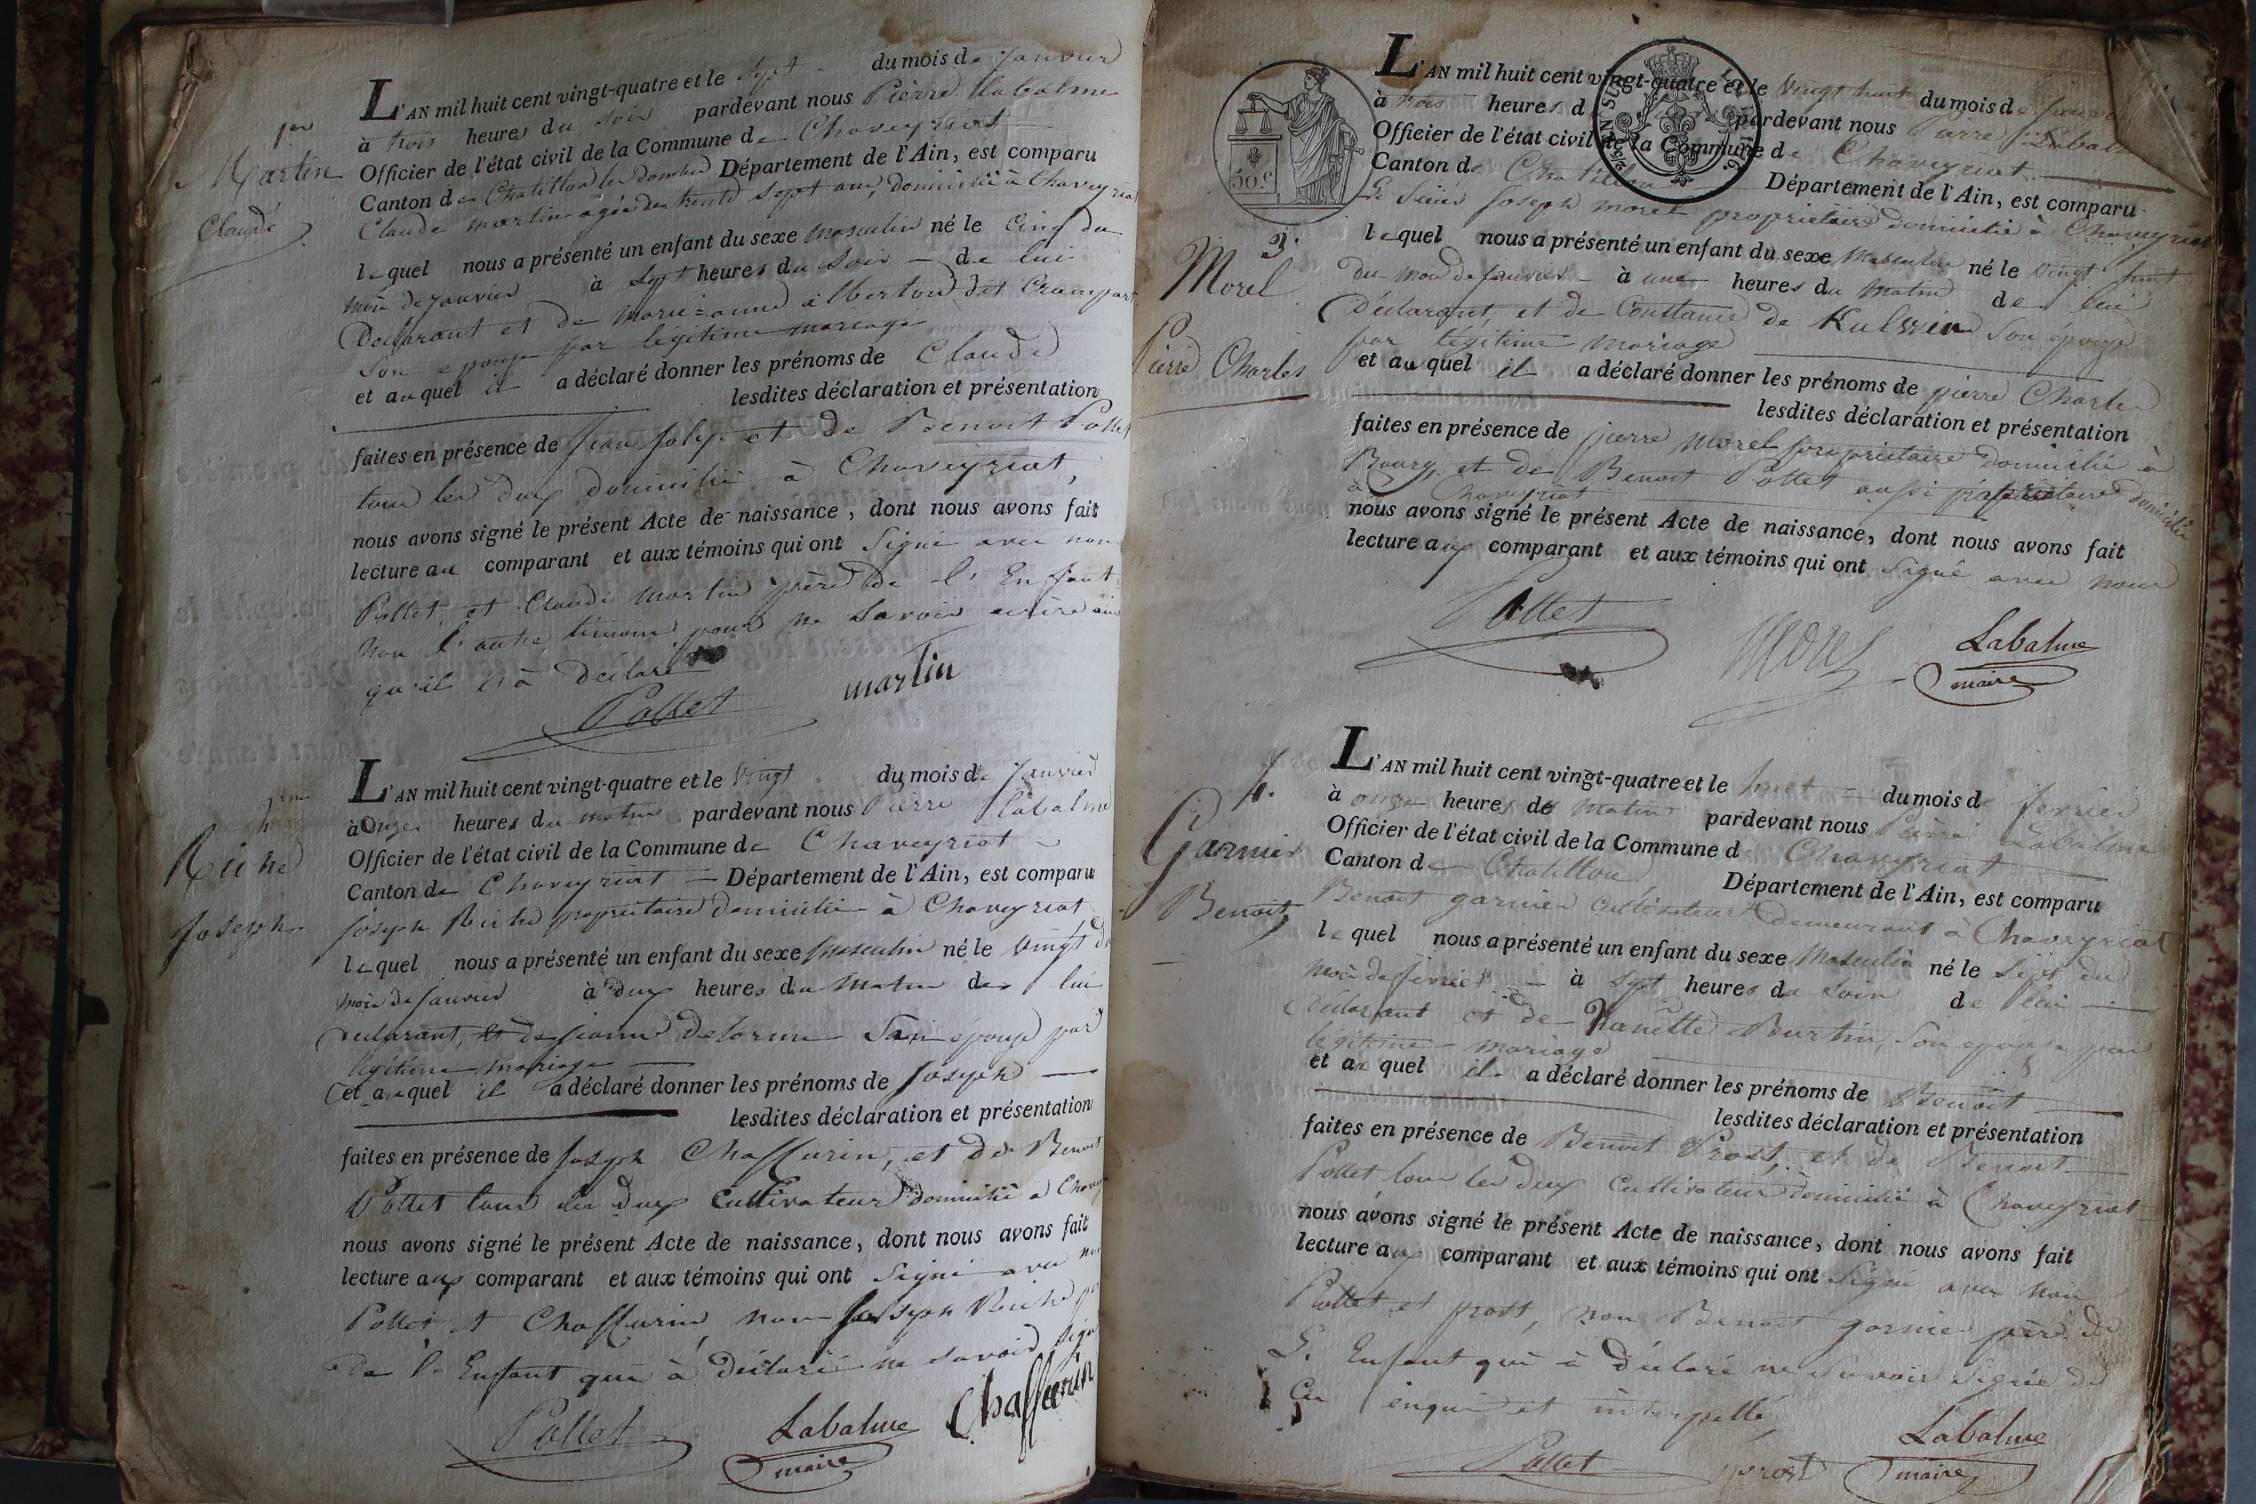 1er
Martin
Claude
L'AN mil huit cent vingt-quatre et le sept du mois de janvier
à trois heures du soir pardevant nous Pierre Labalme
Officier de l'état civil de la Commune de Chaveyriat
Canton de Chatillon les Dombes Département de l'Ain, est comparu
Claude martin agée de trente sept ans, domicilié à Chaveyriat
lequel nous a présenté un enfant du sexe masculin né le cinq du
mois de janvier à sept heures du soir de lui
Déclarant et de marie-anne alberton dit
son épouse par légitime mariage
et auquel il a déclaré donner les prénoms de Claude
lesdites déclaration et présentation
faites en présence de Jean Joly et de Benoit Pollet
tous les deux domicilié à Chaveyriat,
nous avons signé le présent Acte de naissance, dont nous avons fait
lecture au comparant et aux témoins qui ont signé avec nous
Pollet et Claude Martin père de l'Enfant
non l'autre témoin pour ne savoir écrire ainsi
qu'il l'a déclaré
Pollet martin
2me
Riche
Joseph
L'AN mil huit cent vingt-quatre et le vingt du mois de Janvier
à onze heures du matin pardevant nous Pierre Labalme
Officier de l'état civil de la Commune de Chaveyriat
Canton de Chaveyriat Département de l'Ain, est comparu
joseph Riche propriétaire domicilié à Chaveyriat
lequel nous a présenté un enfant du sexe masculin né le vingt du
mois de janvier à deux heures du matin de lui
déclarant, et de jeanne delorme Son épouse par
légitime mariage
et auquel il a déclaré donner les prénoms de joseph
lesdites déclaration et présentation
faites en présence de joseph Chaffurin, et de Benoit
Pollet tous les deux cultivateur domicilié a Chavey
nous avons signé le présent Acte de naissance, dont nous avons fait
lecture aux comparant et aux témoins qui ont signé avec nous
Pollet et Chaffurin non joseph Riche père
de l'Enfant qui à déclaré ne savoir signé
Pollet Labalme maire Chaffurin
50 c
3.
Morel
Pierre Charles
L'AN mil huit cent vingt-quatre et le vingt huit du mois de janvier
à trois heures d pardevant nous Pierre Labalme
Officier de l'état civil de la Commune de Chaveyriat
Canton de Chatillon Département de l'Ain, est comparu
Le Sieur joseph morel propriétaire domicilié à Chaveyriat
lequel nous a présenté un enfant du sexe Masculin né le vingt huit
du mois de janvier à une heures du matin de lui
déclarant, et de Constance de Kulssein son épouse
par légitime mariage
et auquel il a déclaré donner les prénoms de pierre Charles
lesdites déclaration et présentation
faites en présence de pierre morel propriétaire domicilié à
Bourg et de Benoit Pollet aussi propriétaire domicilié
à Chaveyriat
nous avons signé le présent Acte de naissance, dont nous avons fait
lecture aux comparant et aux témoins qui ont signé avec nous
Pollet Morel Labalme
maire
4.
Garnier
Benoit
L'AN mil huit cent vingt-quatre et le huit du mois de fevrier
à onze heures de matin pardevant nous Pierre Labalme
Officier de l'état civil de la Commune de Chaveyriat
Canton de Chatillon Département de l'Ain, est comparu
Benoit garnier cultivateur demeurant à Chaveyriat
lequel nous a présenté un enfant du sexe Masculin né le sept du
mois de fevrier à sept heures du soir de lui
déclarant et de Nanette Bourtin, son epouse par
légitime mariage
et auquel il a déclaré donner les prénoms de Benoit
lesdites déclaration et présentation
faites en présence de Benoit Prost, et de Benoit
Pollet tous les deux cultivateur domicilié à Chaveyriat
nous avons signé le présent Acte de naissance, dont nous avons fait
lecture aux comparant et aux témoins qui ont signé avec nous
Pollet et prost, non Benoit garnier père de
L'Enfant qui à déclaré ne savoir signée de
Ce enquis et interpellé,
Pollet prost Labalme
maire